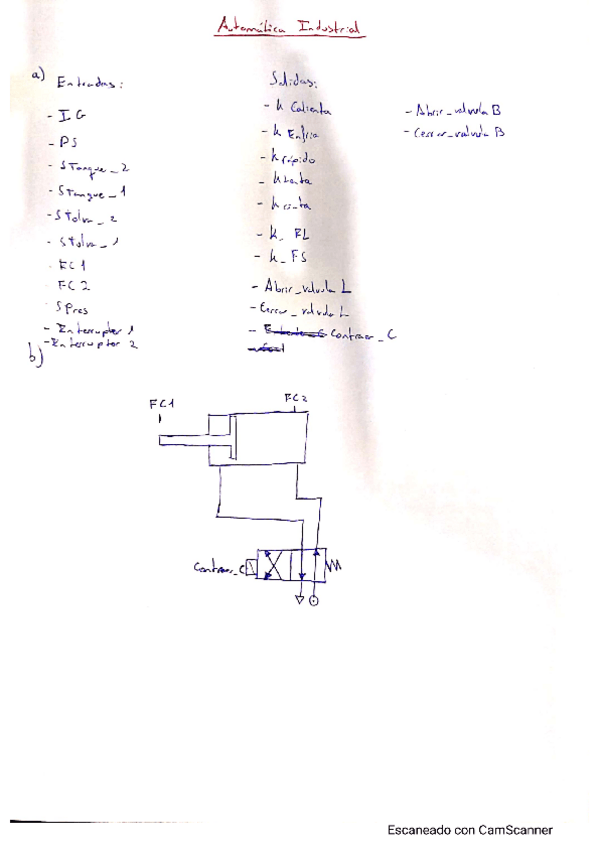 Automática Industrial
a) Entradas:
- IG
- PS
- STanque_2
- STanque_1
- STolva_2
- STolva_1
FC1
FC2
SPres
- Interruptor 1
- Interruptor 2
Salidas:
- K Calienta
- K Enfría
- K rápido
- K lenta
- K cinta
- K_FL
- K_FS
- Abrir_valvula L
- Cerrar_valvula L
- Contraer_C
- Abrir_valvula B
- Cerrar_valvula B
b)
FC1
FC2
Contraer_C
Escaneado con CamScanner